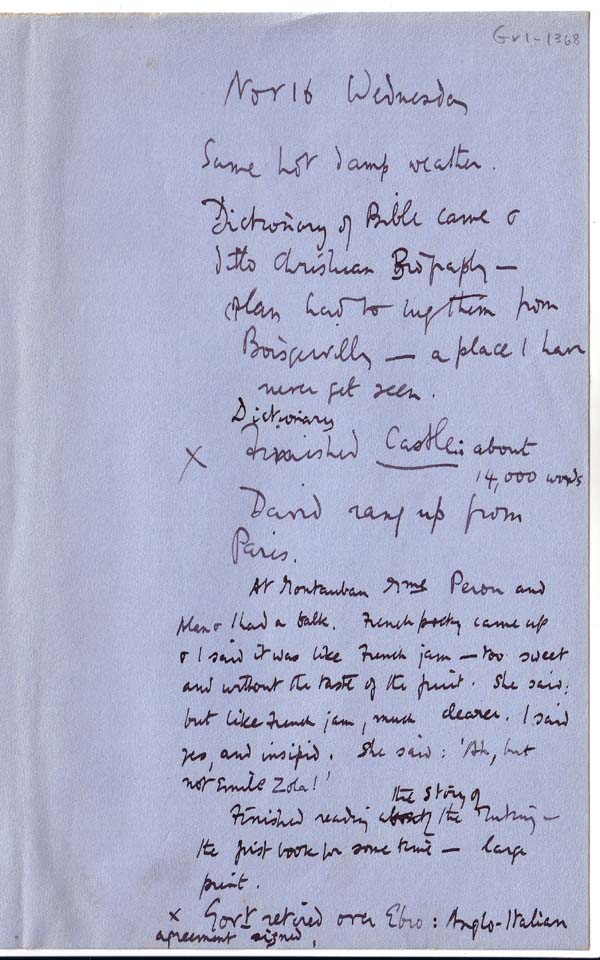 Gv1-1368
Nov 16 Wednesday
Same hot damp weather.
Dictionary of Bible came &
ditto Christian Biography —
Alan had to lug them from
— a place I have
never yet seen.
Dictionary
x Finished Castle: about
14,000 words
David rang up from
Paris.
At Montauban Mme Peron and
Alan & I had a talk. French poetry came up
& I said it was like French jam — too sweet
and without the taste of the fruit. She said:
but like French jam, much clearer. I said
yes, and insipid. She said: 'Ah, but
not Emile Zola!'
the story of
Finished reading the Mutiny —
the first book for some time — large
print.
x Govt retired over Ebro: Anglo-Italian
agreement signed.